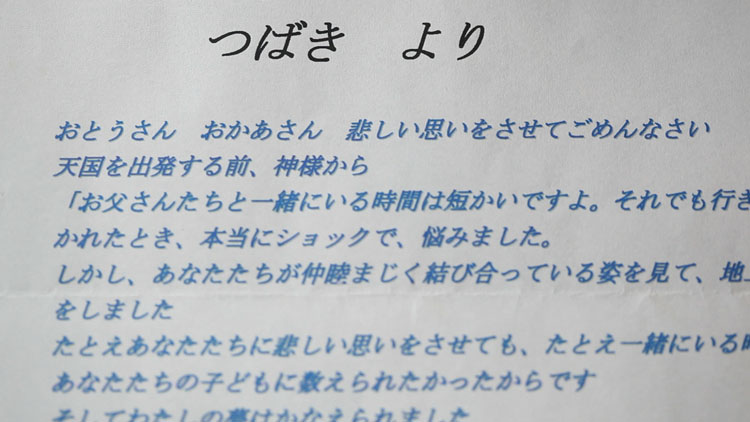 つばき　より
おとうさん　おかあさん　悲しい思いをさせてごめんなさい
天国を出発する前、神様から
「お父さんたちと一緒にいる時間は短かいですよ。それでも行き
かれたとき、本当にショックで、悩みました。
しかし、あなたたちが仲睦まじく結び合っている姿を見て、地上
をしました
たとえあなたたちに悲しい思いをさせても、たとえ一緒にいる時
あなたたちの子どもに数えられたかったからです
そしてわたしの夢はかなえられました